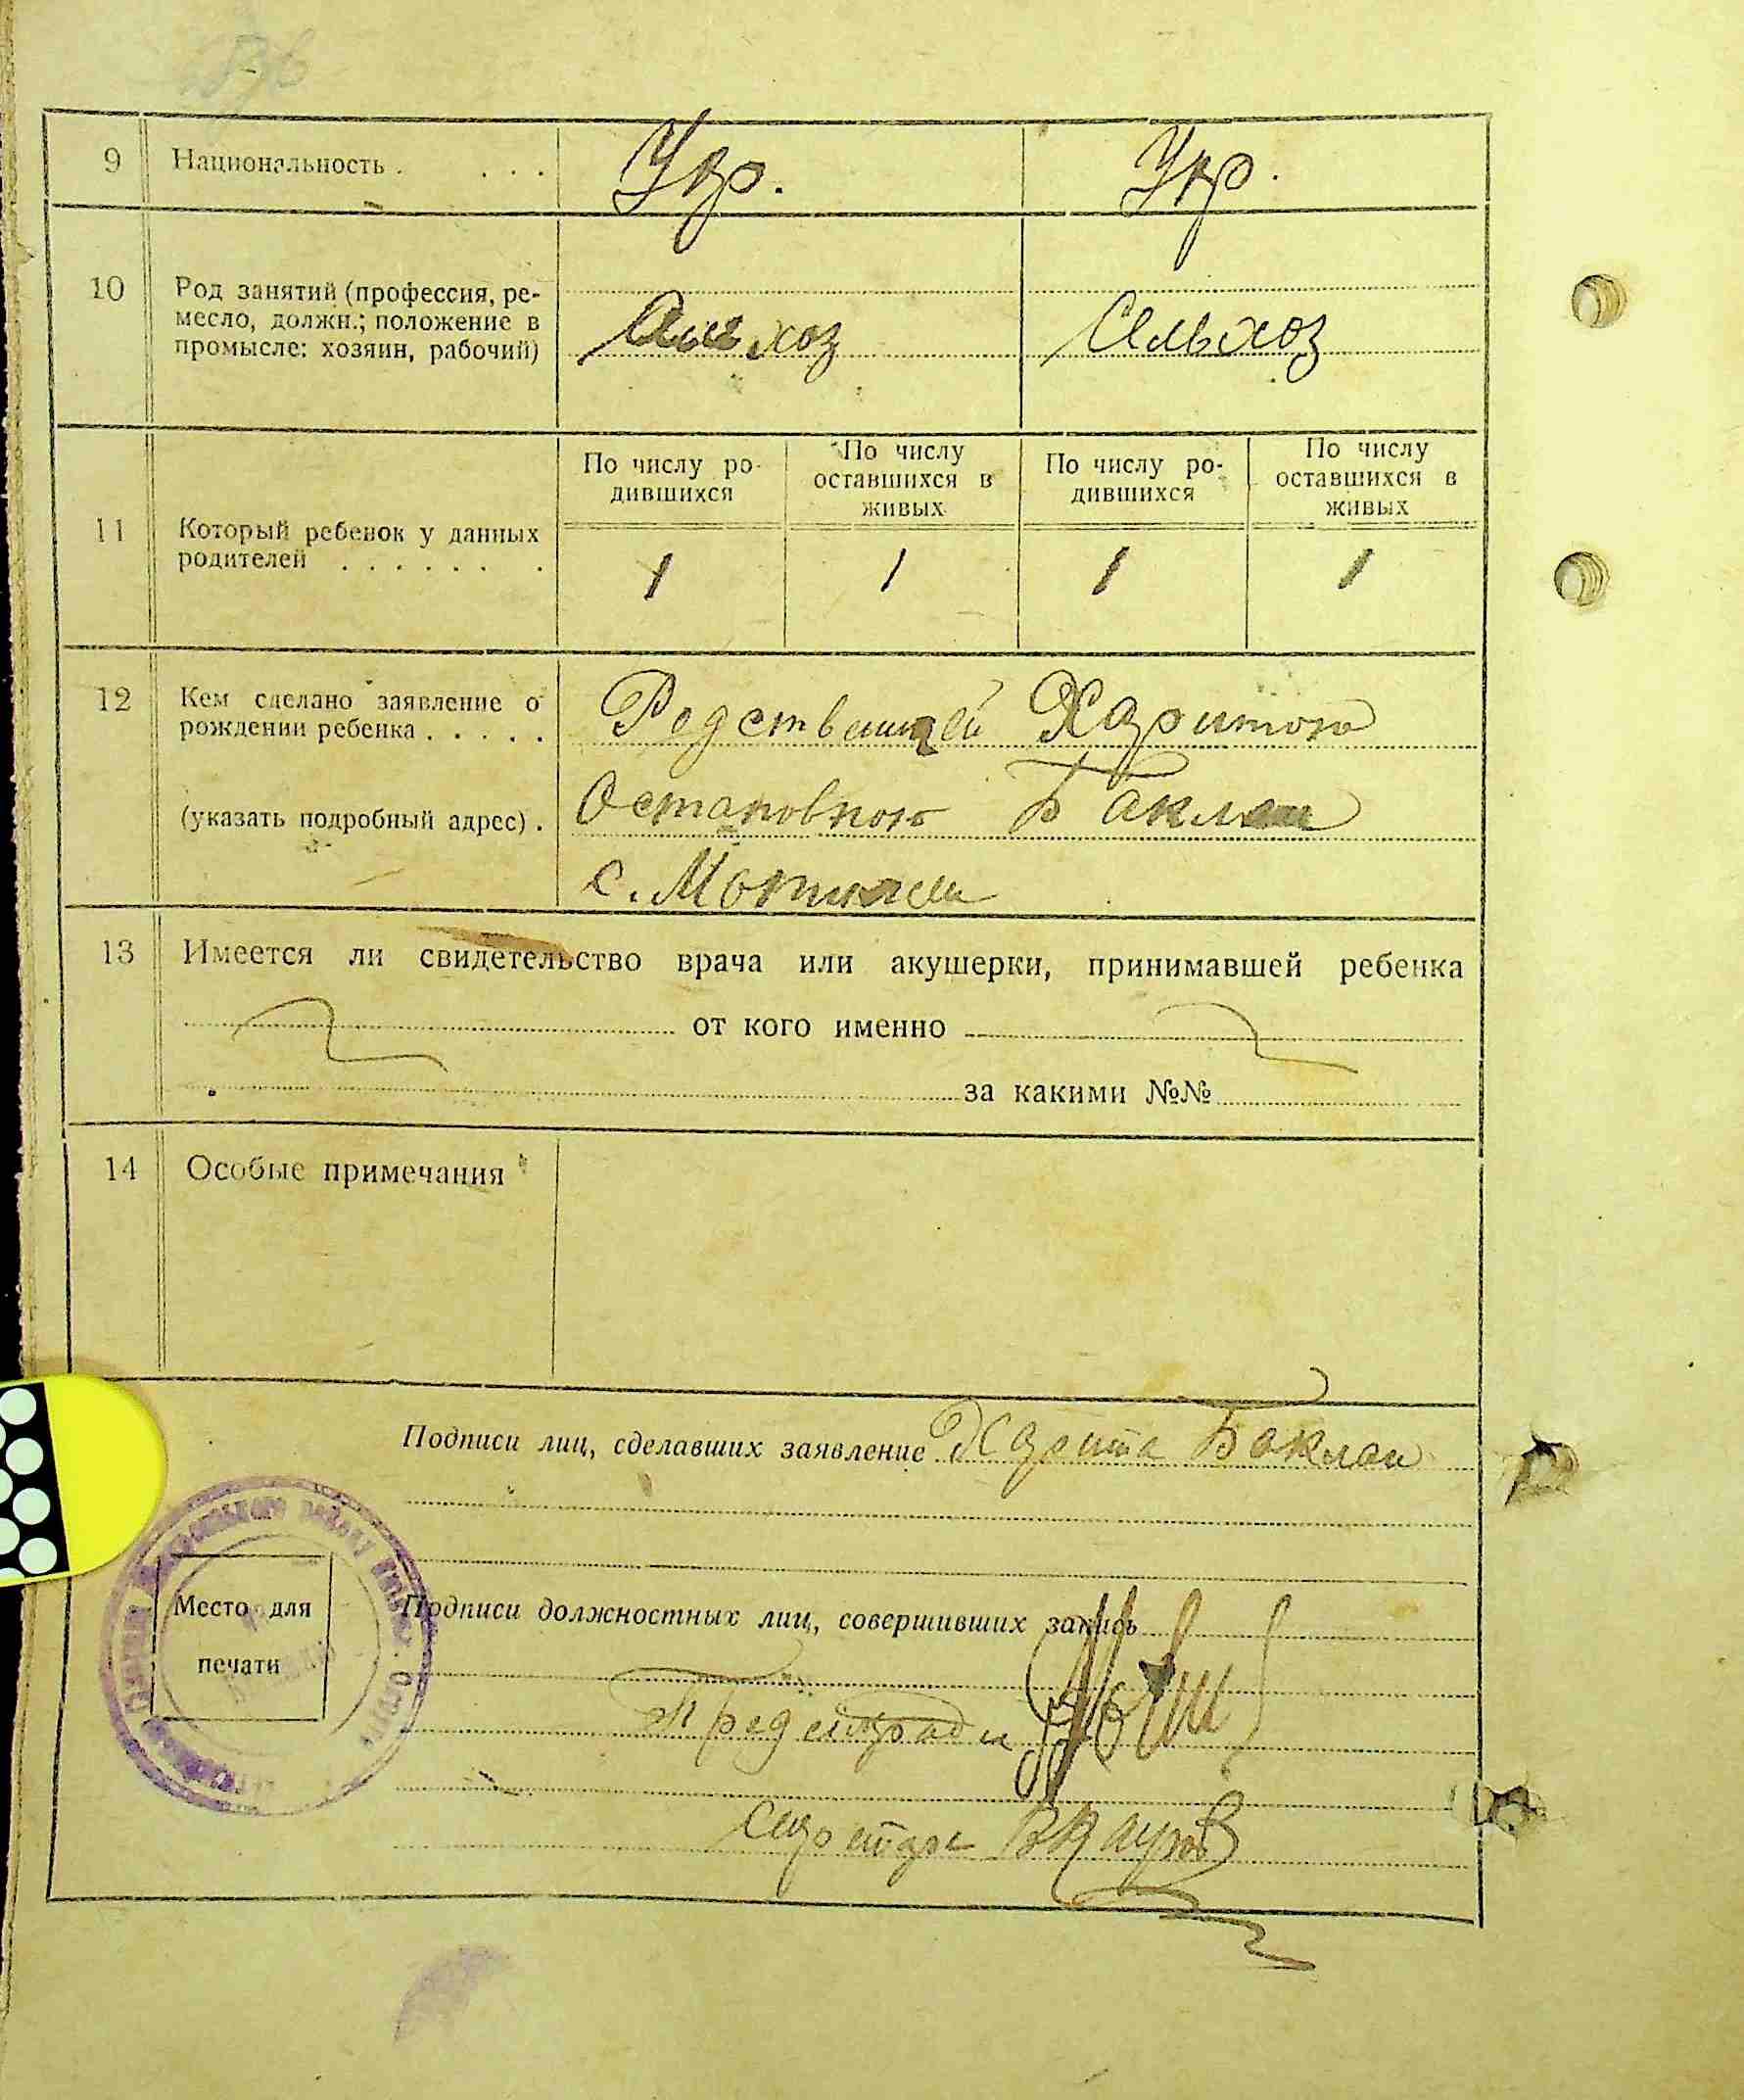 9 Национальность . . . . Укр. Укр.
10 Род занятий (профессия, ре-
месло, должн.; положение в
промысле: хозяин, рабочий) хоз Сельхоз
По числу ро-
дившихся
По числу
оставшихся в
живых
По числу ро-
дившихся
По числу
оставшихся в
живых
11 Который ребенок у данных
родителей . . . . . . .
1 1 1 1
12 Кем сделано заявление о
рождении ребенка . . . . .
Харитою
(указать подробный адрес) .
Остаповною Баклан
с.
13 Имеется ли свидетельство врача или акушерки, принимавшей ребенка
от кого именно
за какими №№
14 Особые примечания
Подписи лиц, сделавших заявление Харита Баклан
Место для
печати
Подписи должностных лиц, совершивших запись